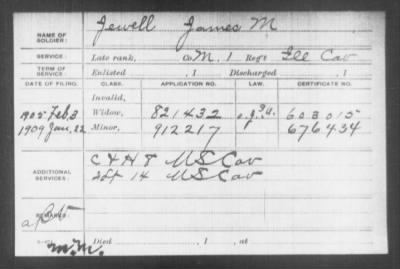 NAME OF SOLDIER: Jewell James M
SERVICE: Late rank, Co. M, 1 Reg't Ill Cav
TERM OF SERVICE: Enlisted , 1 Discharged , 1
DATE OF FILING. CLASS. APPLICATION NO. LAW. CERTIFICATE NO.
Invalid,
1905 Feb. 3 Widow, 821432 603015
1909 Jan. 22 Minor, 912217 676434
ADDITIONAL SERVICES: C & H 8 US Cav
14 US Cav
REMARKS:
Died , 1 , at
M.M.